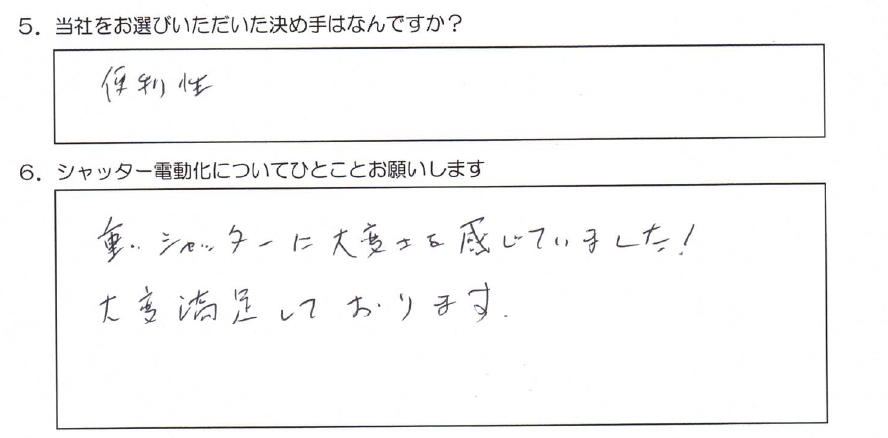 5. 当社をお選びいただいた決め手はなんですか？
便利性
6. シャッター電動化についてひとことお願いします
重いシャッターに大変さを感じていました！
大変満足しております.